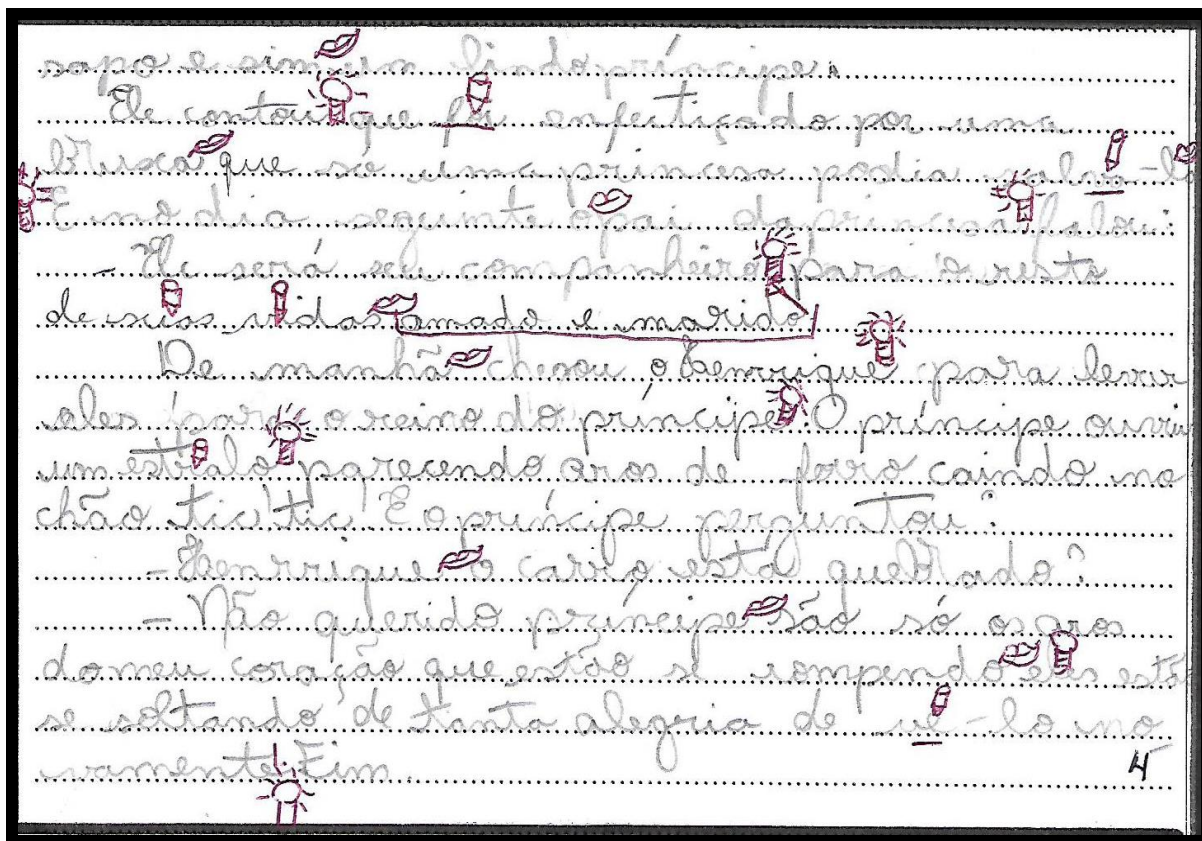 sapo e sim um lindo príncipe.
Ele contou que foi enfeitiçado por uma
bruxa que só uma princesa podia salva-lo
E no dia seguinte o pai da princesa falou:
- Ele será seu companheiro para o resto
de suas vidas amado e marido!
De manhã chegou o Henrrique para levar
eles para o reino do príncipe. O príncipe ouviu
um estralo parecendo aros de ferro caindo no
chão tic! tic! E o príncipe perguntou:
- Henrrique o carro está quebrado?
- Não querido príncipe são só os aros
do meu coração que estão se rompendo eles estão
se soltando de tanta alegria de vê-lo no
vamente. Fim.
4